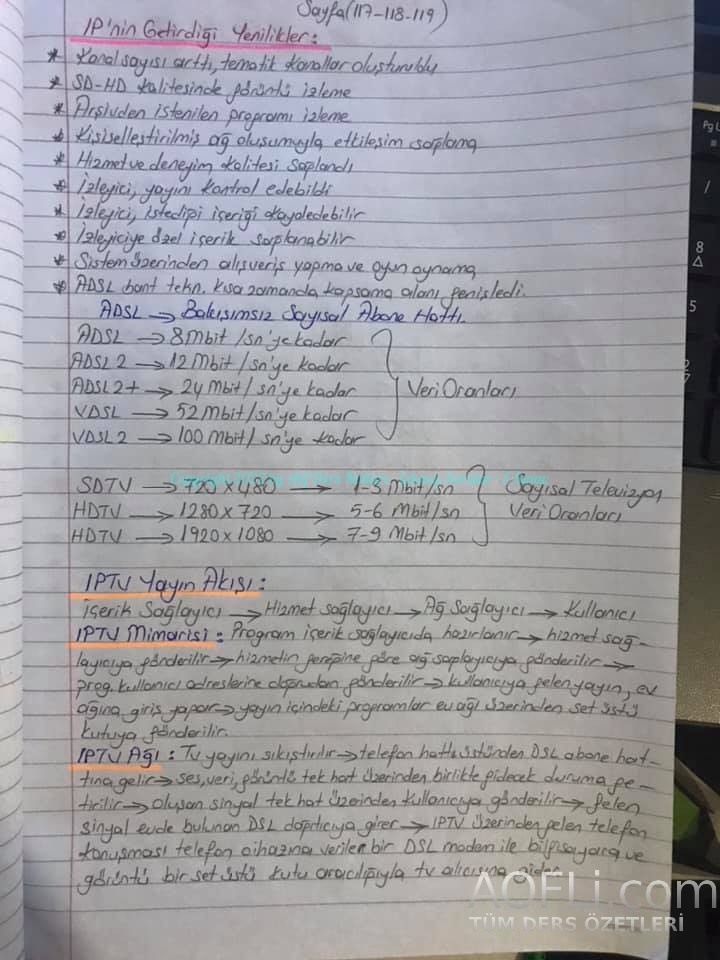 Sayfa(117-118-119)
IP'nin Getirdiği Yenilikler:
* Kanal sayısı arttı, tematik kanallar oluşturuldu
* SD-HD kalitesinde görüntü izleme
* Arşivden istenilen programı izleme
* Kişiselleştirilmiş ağ oluşumuyla etkileşim sağlama
* Hizmet ve deneyim kalitesi sağlandı
* İzleyici, yayını kontrol edebildi
* İzleyici, istediği içeriği kaydedebilir
* İzleyiciye özel içerik sağlanabilir
* Sistem üzerinden alışveriş yapma ve oyun oynama
* ADSL bant tekn. kısa zamanda kapsama alanı genişledi.
ADSL → Bakışımsız Sayısal Abone Hattı.
ADSL → 8 Mbit/sn'ye kadar
ADSL 2 → 12 Mbit/sn'ye kadar
ADSL 2+ → 24 Mbit/sn'ye kadar Veri Oranları
VDSL → 52 Mbit/sn'ye kadar
VDSL 2 → 100 Mbit/sn'ye kadar
SDTV → 720 x 480 → 1-3 Mbit/sn Sayısal Televizyon
HDTV → 1280 x 720 → 5-6 Mbit/sn Veri Oranları
HDTV → 1920 x 1080 → 7-9 Mbit/sn
IPTV Yayın Akışı:
İçerik Sağlayıcı → Hizmet sağlayıcı → Ağ Sağlayıcı → Kullanıcı
IPTV Mimarisi: Program içerik sağlayıcıda hazırlanır → hizmet sağ-
layıcıya gönderilir → hizmetin gereğine göre ağ sağlayıcıya gönderilir →
prog. kullanıcı adreslerine doğrudan gönderilir → kullanıcıya gelen yayın, ev
ağına giriş yapar → yayın içindeki programlar ev ağı üzerinden set üstü
kutuya gönderilir.
IPTV Ağı: Tv yayını sıkıştırılır → telefon hattı üstünden DSL abone hat-
tına gelir → ses, veri, görüntü tek hat üzerinden birlikte gidecek duruma ge-
tirilir → oluşan sinyal tek hat üzerinden kullanıcıya gönderilir → gelen
sinyal evde bulunan DSL dağıtıcıya girer → IPTV üzerinden gelen telefon
konuşması telefon cihazına verilen bir DSL modem ile bilgisayara ve
görüntü bir set üstü kutu aracılığıyla tv alıcısına gider.
AOFLi.com
TÜM DERS ÖZETLERİ
Pg U
/
8
5
2